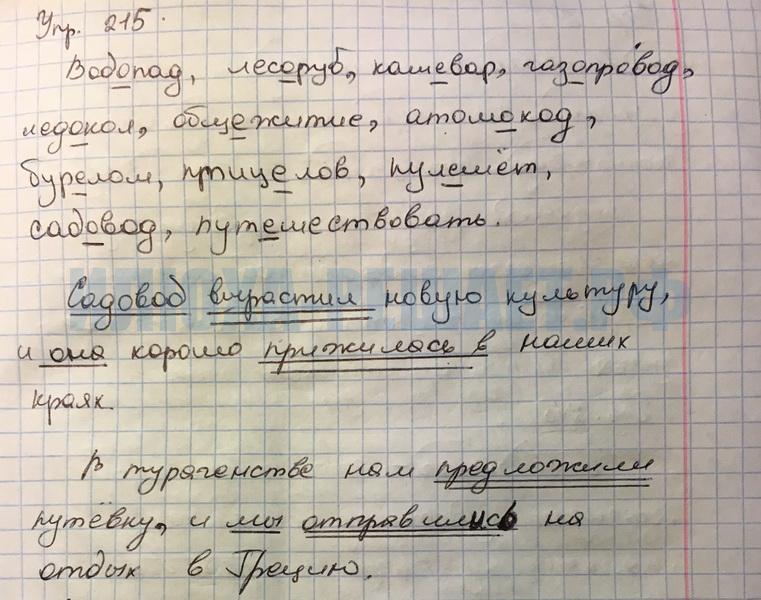 Упр. 215.
Водопад, лесоруб, кашевар, газопрово́д,
ледокол, общежитие, атомоход,
бурелом, птицелов, пулемёт,
садовод, путешествовать.
Садовод вырастил новую культуру,
и она хорошо прижилась в наших
краях.
В турагенстве нам предложили
путёвку, и мы отправились на
отдых в Грецию.